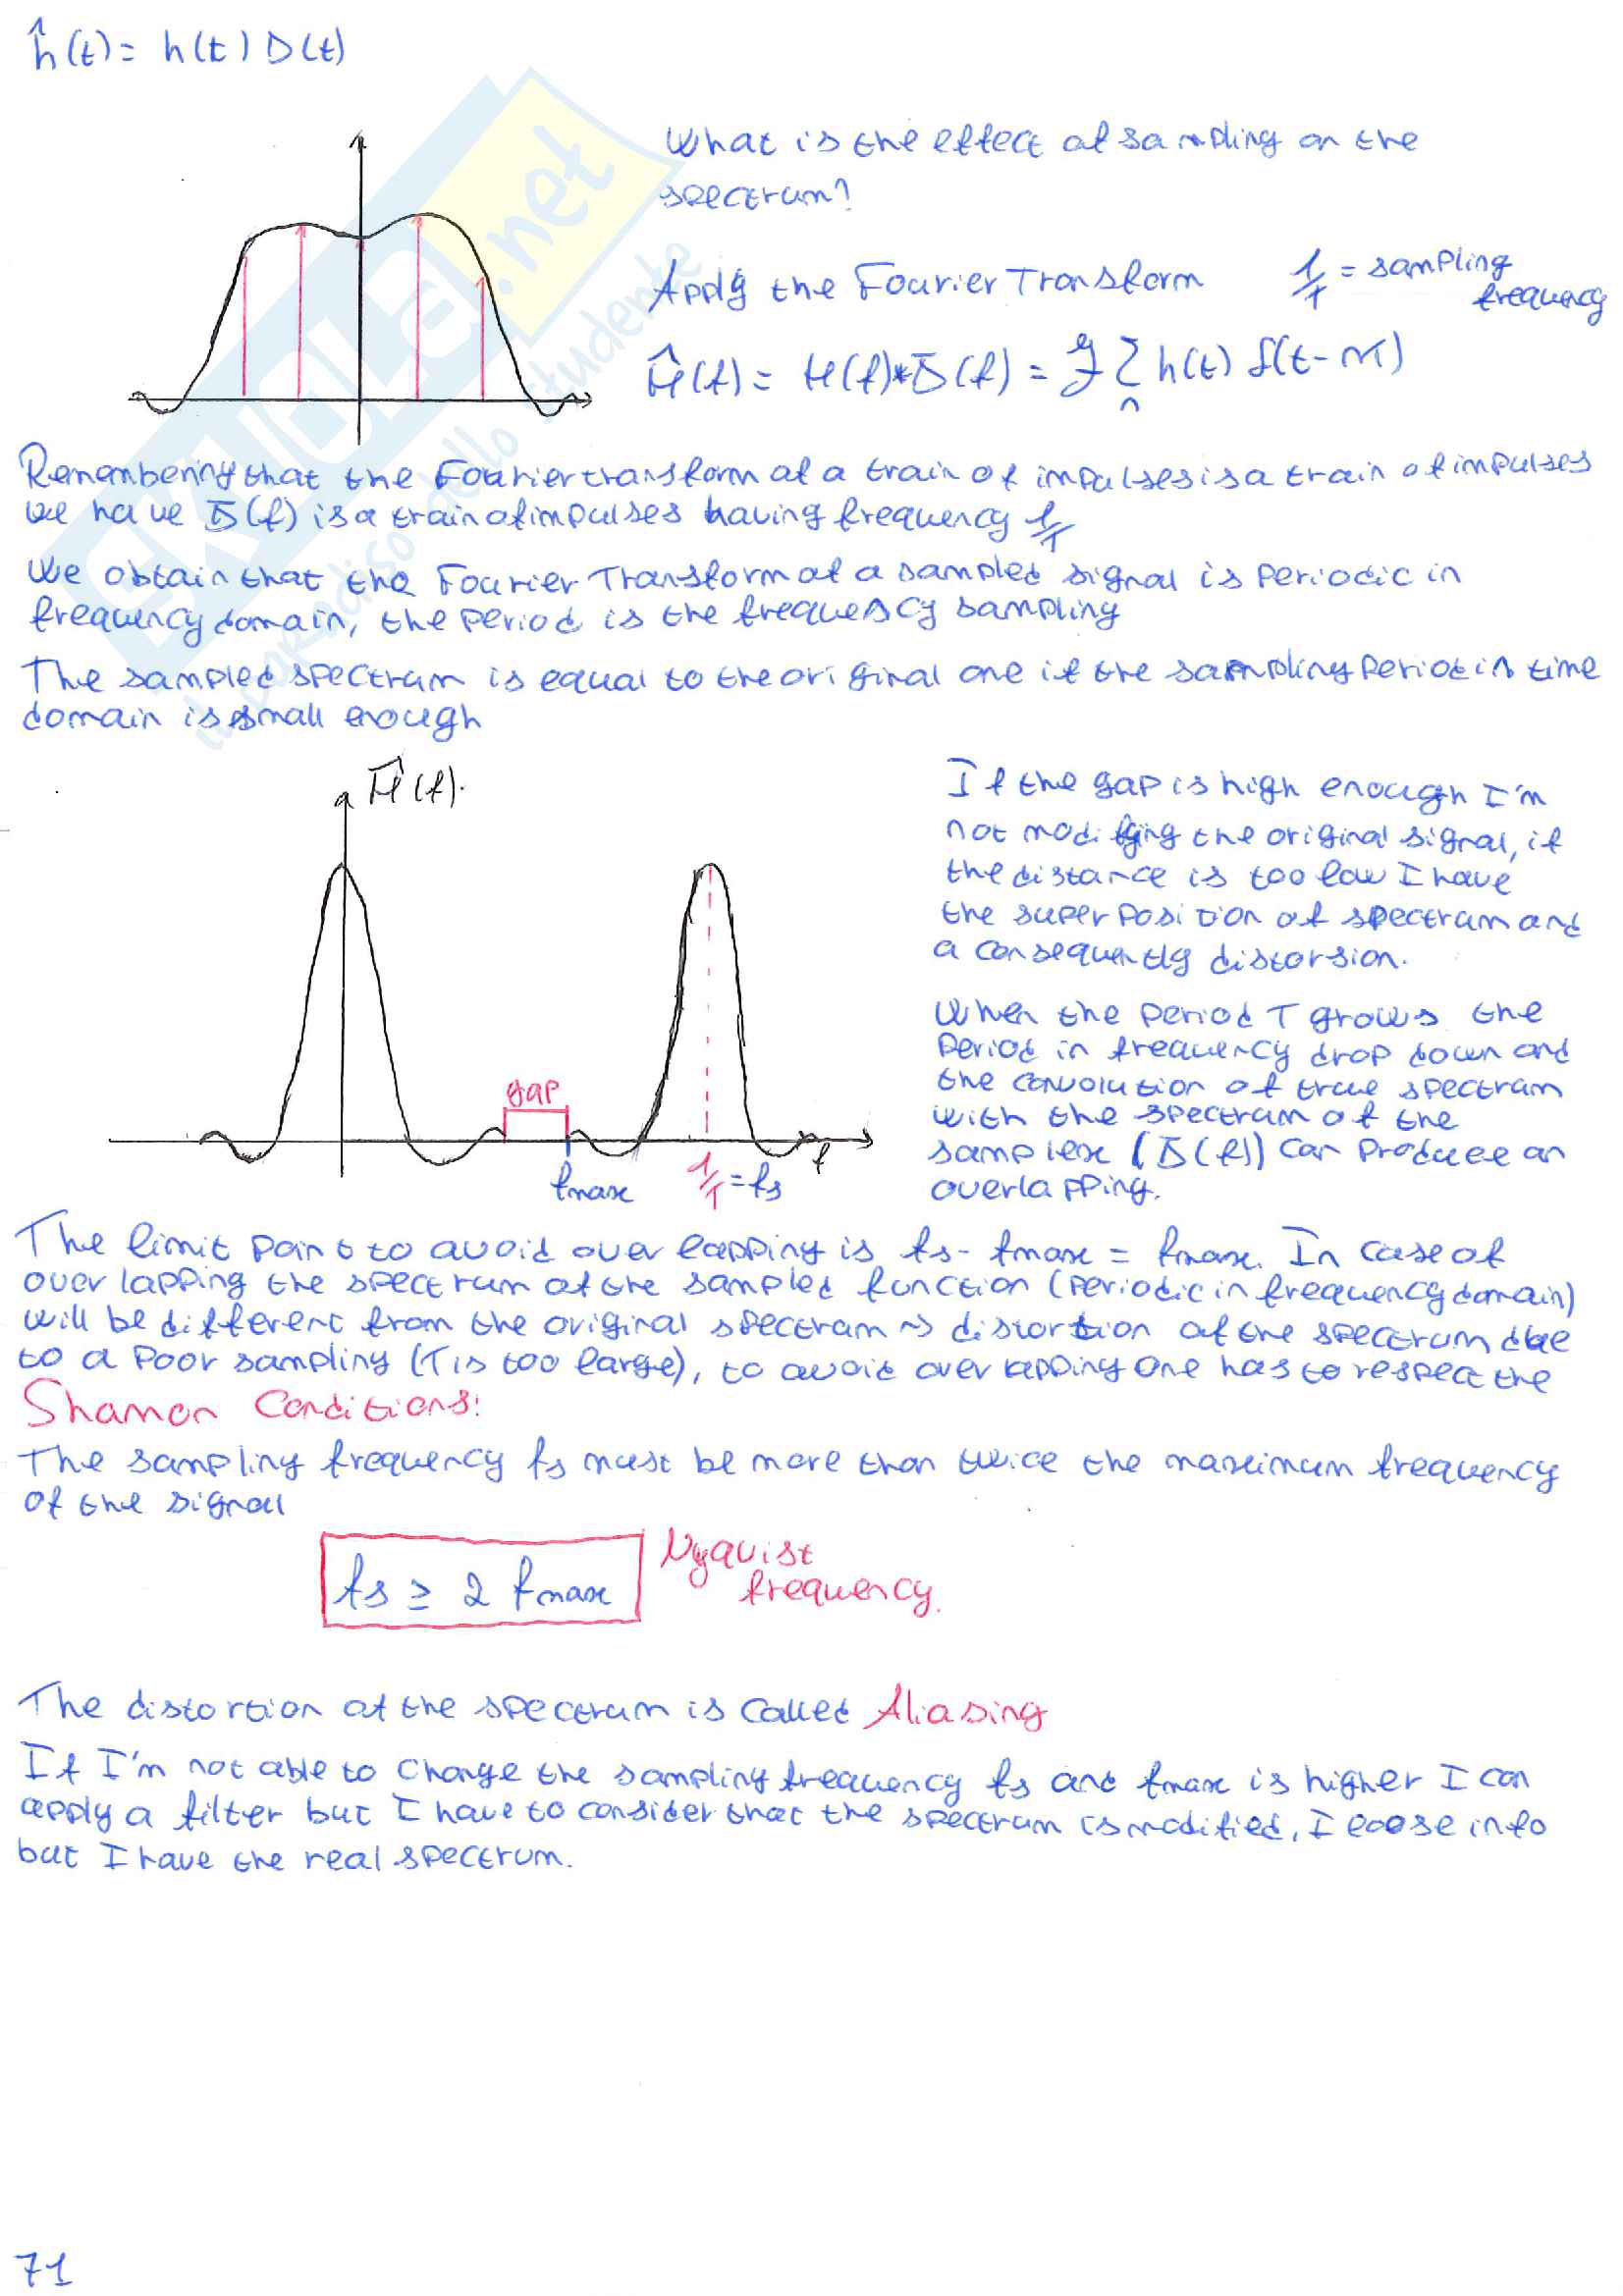 ĥ(t) = h(t) D(t)
What is the effect of sampling on the
spectrum?
Apply the Fourier Transform 1/T = sampling
frequency
Ĥ(f) = H(f)*D(f) = F Σ h(t) δ(t-nT)
n
Remembering that the Fourier transform of a train of impulses is a train of impulses
we have D(f) is a train of impulses having frequency 1/T
We obtain that the Fourier Transform of a sampled signal is periodic in
frequency domain, the period is the frequency sampling
The sampled spectrum is equal to the original one if the sampling period in time
domain is small enough
Ĥ(f).
gap
fmax
1/T = fs
f
If the gap is high enough I'm
not modifying the original signal, if
the distance is too low I have
the superposition of spectrum and
a consequently distorsion.
When the period T grows the
period in frequency drop down and
the convolution of true spectrum
with the spectrum of the
(D(f)) can produce an
overlapping.
The limit point to avoid overlapping is fs - fmax = fmax. In case of
overlapping the spectrum of the sampled function (periodic in frequency domain)
will be different from the original spectrum ⇝ distortion of the spectrum due
to a poor sampling (T is too large), to avoid overlapping one has to respect the
Shannon Conditions:
The sampling frequency fs must be more than twice the maximum frequency
of the signal
fs ≥ 2 fmax
Nyquist
frequency.
The distortion of the spectrum is called Aliasing
If I'm not able to change the sampling frequency fs and fmax is higher I can
apply a filter but I have to consider that the spectrum is modified, I loose info
but I have the real spectrum.
71
SKUOLA.net
il paradiso dello studente